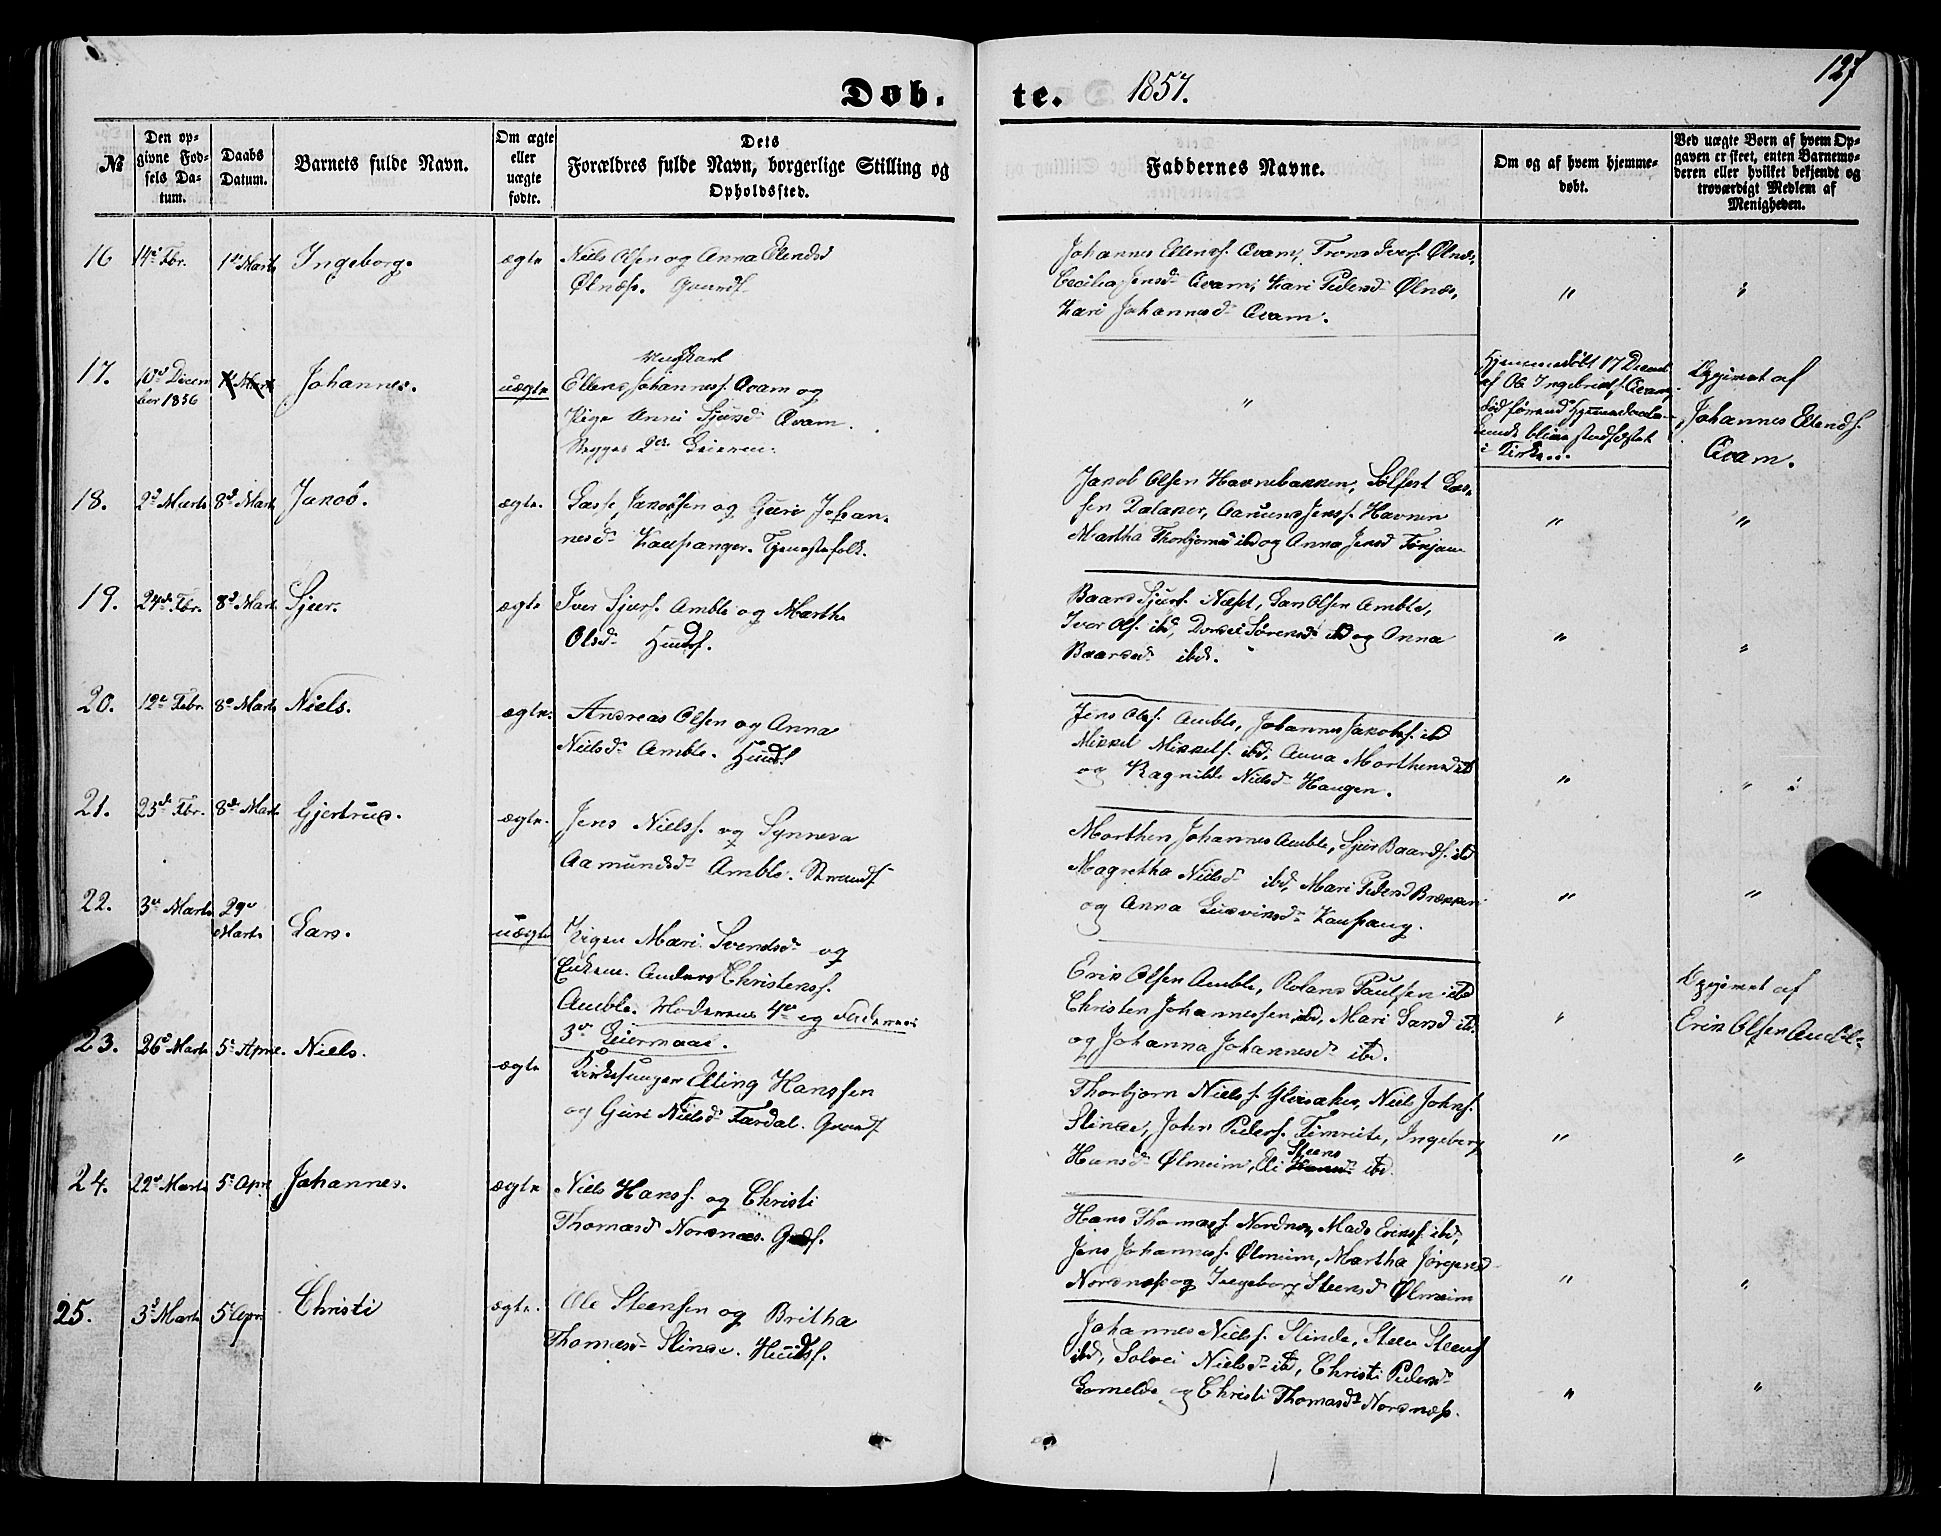 127
Døb. te. 1857.
№
Den opgivne Fødsels Datum.
Daabs Datum.
Barnets fulde Navn.
Om ægte eller uægte fødte.
Dets Forældres fulde Navn, borgerlige Stilling og Opholdssted.
Faddernes Navne.
Om og af hvem hjemmedøbt.
Ved uægte Børn af hvem Opgaven er skeet, enten Barnemoderen eller hvilket bekjendt og troværdigt Medlem af Menigheden.
16 14de Fbr. 1ste Marts Ingeborg. ægte
Niels Olsen og Anna Ellendsd
Ølnæss. Gaardf.
Johannes Ellensf. Qvam, Trond Iversf. Ølnæs,
Cecilia Jensd Qvam, Kari Pedersd Ølnæs,
Kari Johannesd Qvam. " "
17. 10d Decem 1 Marts Johannes. uægte
ber 1856
Ungkarl
Ellend Johannesf. Qvam og
Pige Anni Sjursd Qvam.
Begges 2det Leierm. "
Hjemmedøbt 17 Decemb
af Ole Ingebrigtsf. Qvam,
død førend Hjemmedaaben
kunde blive stadfæstet
i Kirken.
Opgivet af
Johannes Ellendsf.
Qvam.
18. 2d Marts 8d Marts Jacob. ægte.
Lasse Jacobsen og Guri Johan-
nesd Kaupanger. Tjenestefolk.
Jacob Olsen Havnebakken, Solfest Las-
sen Dalaker, Aamund Jensf. Havnen
Martha Thorbjørnsd ibd og Anna Jensd Tønjum " "
19. 24de Fbr. 8d Marts Sjur. ægte
Iver Sjursf. Amble og Martha
Olsd Huusf.
Baard Sjursf. Næset, Lars Olsen Amble,
Iver Olsf. ibd, Dorthe Sørensd ibd og Anna
Baardsd ibd. " "
20. 12te Febr. 8de Marts Niels. ægte.
Andreas Olsen og Anna
Nielsd Amble. Huusf.
Jens Olsf. Amble, Johannes Jacobsf. ibd
Mikkel Mikkelsf. ibd, Anna Morthensd ibd
og Ragnilde Nielsd Haugen. " "
21. 25de Fbr. 8de Marts Gjertrud. ægte.
Jens Nielsf. og Synneva
Aamundsd Amble. Strandf.
Morthen Johannes Amble, Sjur Baardsf. ibd
Magretha Nielsd ibd, Mari Pedersd Brækken
og Anna Gudvinsd Kaupang. " "
22. 3de Marts 29de Marts Lars. uægte
Pigen Mari Svendsd og
Enkem. Anders Christensf.
Amble. Moderens 4de og Faderens
3de Leiermaal.
Erik Olsen Amble, Roland Paulsen ibd
Christen Johannessen ibd, Mari Larsd ibd
og Johanna Johannesd ibd. "
Opgivet af
Erik Olsen Amble
23. 26de Marts 5te April. Niels. ægte
Kirkesanger Elling Hanssen
og Guri Nielsd Fardal. Gaardf.
Thorbjørn Nielsf. Ylvisaker, Niels Johnsf.
Slinde, John Pedersf. Timreite, Ingeborg
Hansd Ølmeim, Eli Steensd ibd. " "
24. 22de Marts 5te Apr. Johannes. ægte
Niels Hansf. og Christi
Thomasd Nordnæs. Grdf.
Hans Thomasf. Nordnæs, Mads Eriksf. ibd,
Jens Johannesf. Ølmeim, Martha Jørgensd
Nordnæs og Ingeborg Steensd Ølmeim " "
25. 3d Marts 5te Apr. Christi ægte.
Ole Steensen og Britha
Thomasd Slinde. Huusf.
Johannes Nielsf. Slinde, Steen Steensf
ibd, Solvei Nielsd ibd, Christi Pedersd
Gomelde og Christi Thomasd Nordnæs. " "